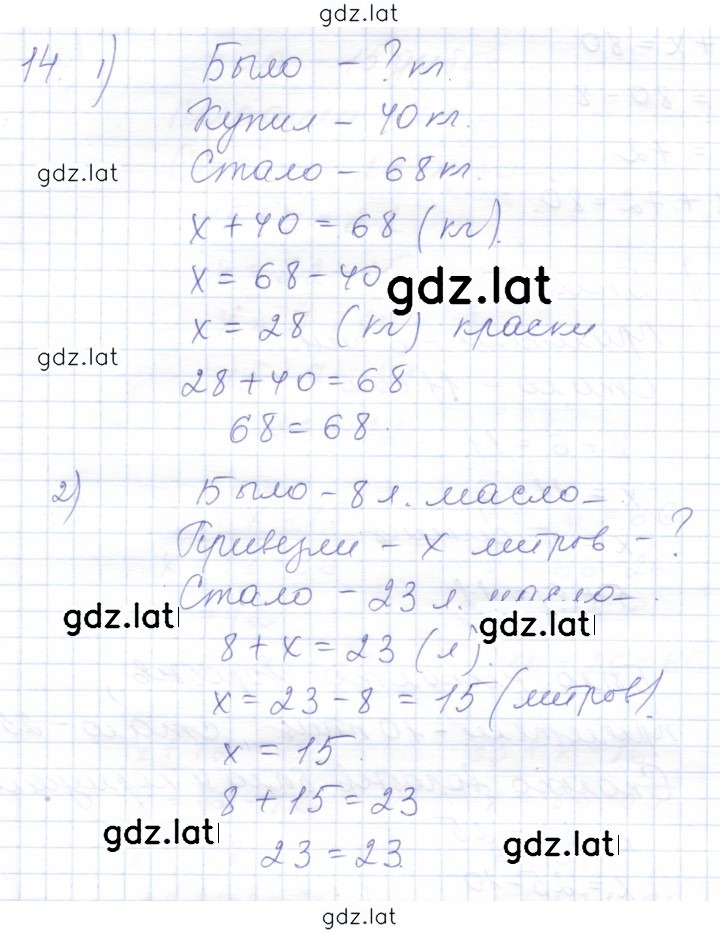 gdz.lat
14. 1) Было - ? кг.
Купил - 40 кг.
gdz.lat
Стало - 68 кг.
x + 40 = 68 (кг).
x = 68 - 40
gdz.lat
x = 28 (кг) краски
gdz.lat
28 + 40 = 68
68 = 68.
2) Было - 8 л. масло -
Привезли - x литров - ?
Стало - 23 л. масло -.
gdz.lat
gdz.lat
8 + x = 23 (л).
x = 23 - 8 = 15 (литров).
x = 15.
8 + 15 = 23
gdz.lat
gdz.lat
23 = 23.
gdz.lat